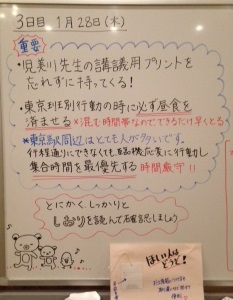 3日目 1月28日(木)
重要
・児美川先生の講義用プリントを
忘れずに持ってくる!
・東京班別行動の時に必ず昼食を
済ませる ※混む時間帯なのでできるだけ早くとる
※東京駅周辺はとても人が多いです。
行程通りにできなくても臨機応変に行動し
集合時間を最優先する 時間厳守!!
とにかく、しっかりと
しおりを読んで確認しましょう
ほしい人は
どうぞ!